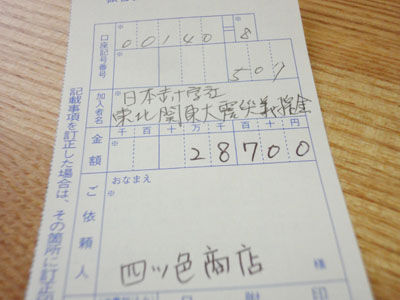 口座記号番号
※ 00140-8
507
加入者名
※ 日本赤十字社
東北関東大震災義援金
金額
千百十万千百十円
※ 28700
ご依頼人
おなまえ
※
四ッ色商店
様
記載事項を訂正した場合は、その箇所に訂正印